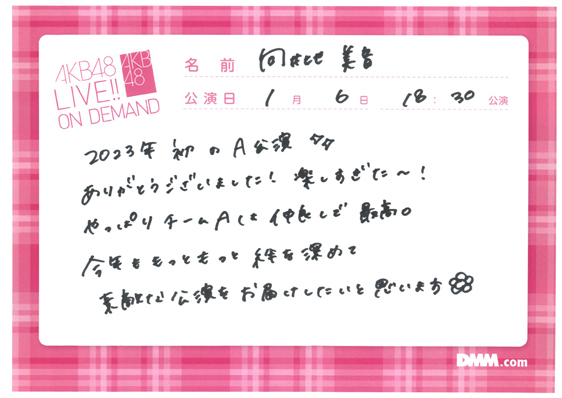 AKB48
LIVE!!
ON DEMAND
AKB
48
名前 向井地 美音
公演日 1月 6日 18:30 公演
2023年 初のA公演
ありがとうございました! 楽しすぎた〜!
やっぱりチームAは仲良しで 最高。
今年ももっともっと 絆を深めて
素敵な公演をお届けしたいと思います
DMM.com